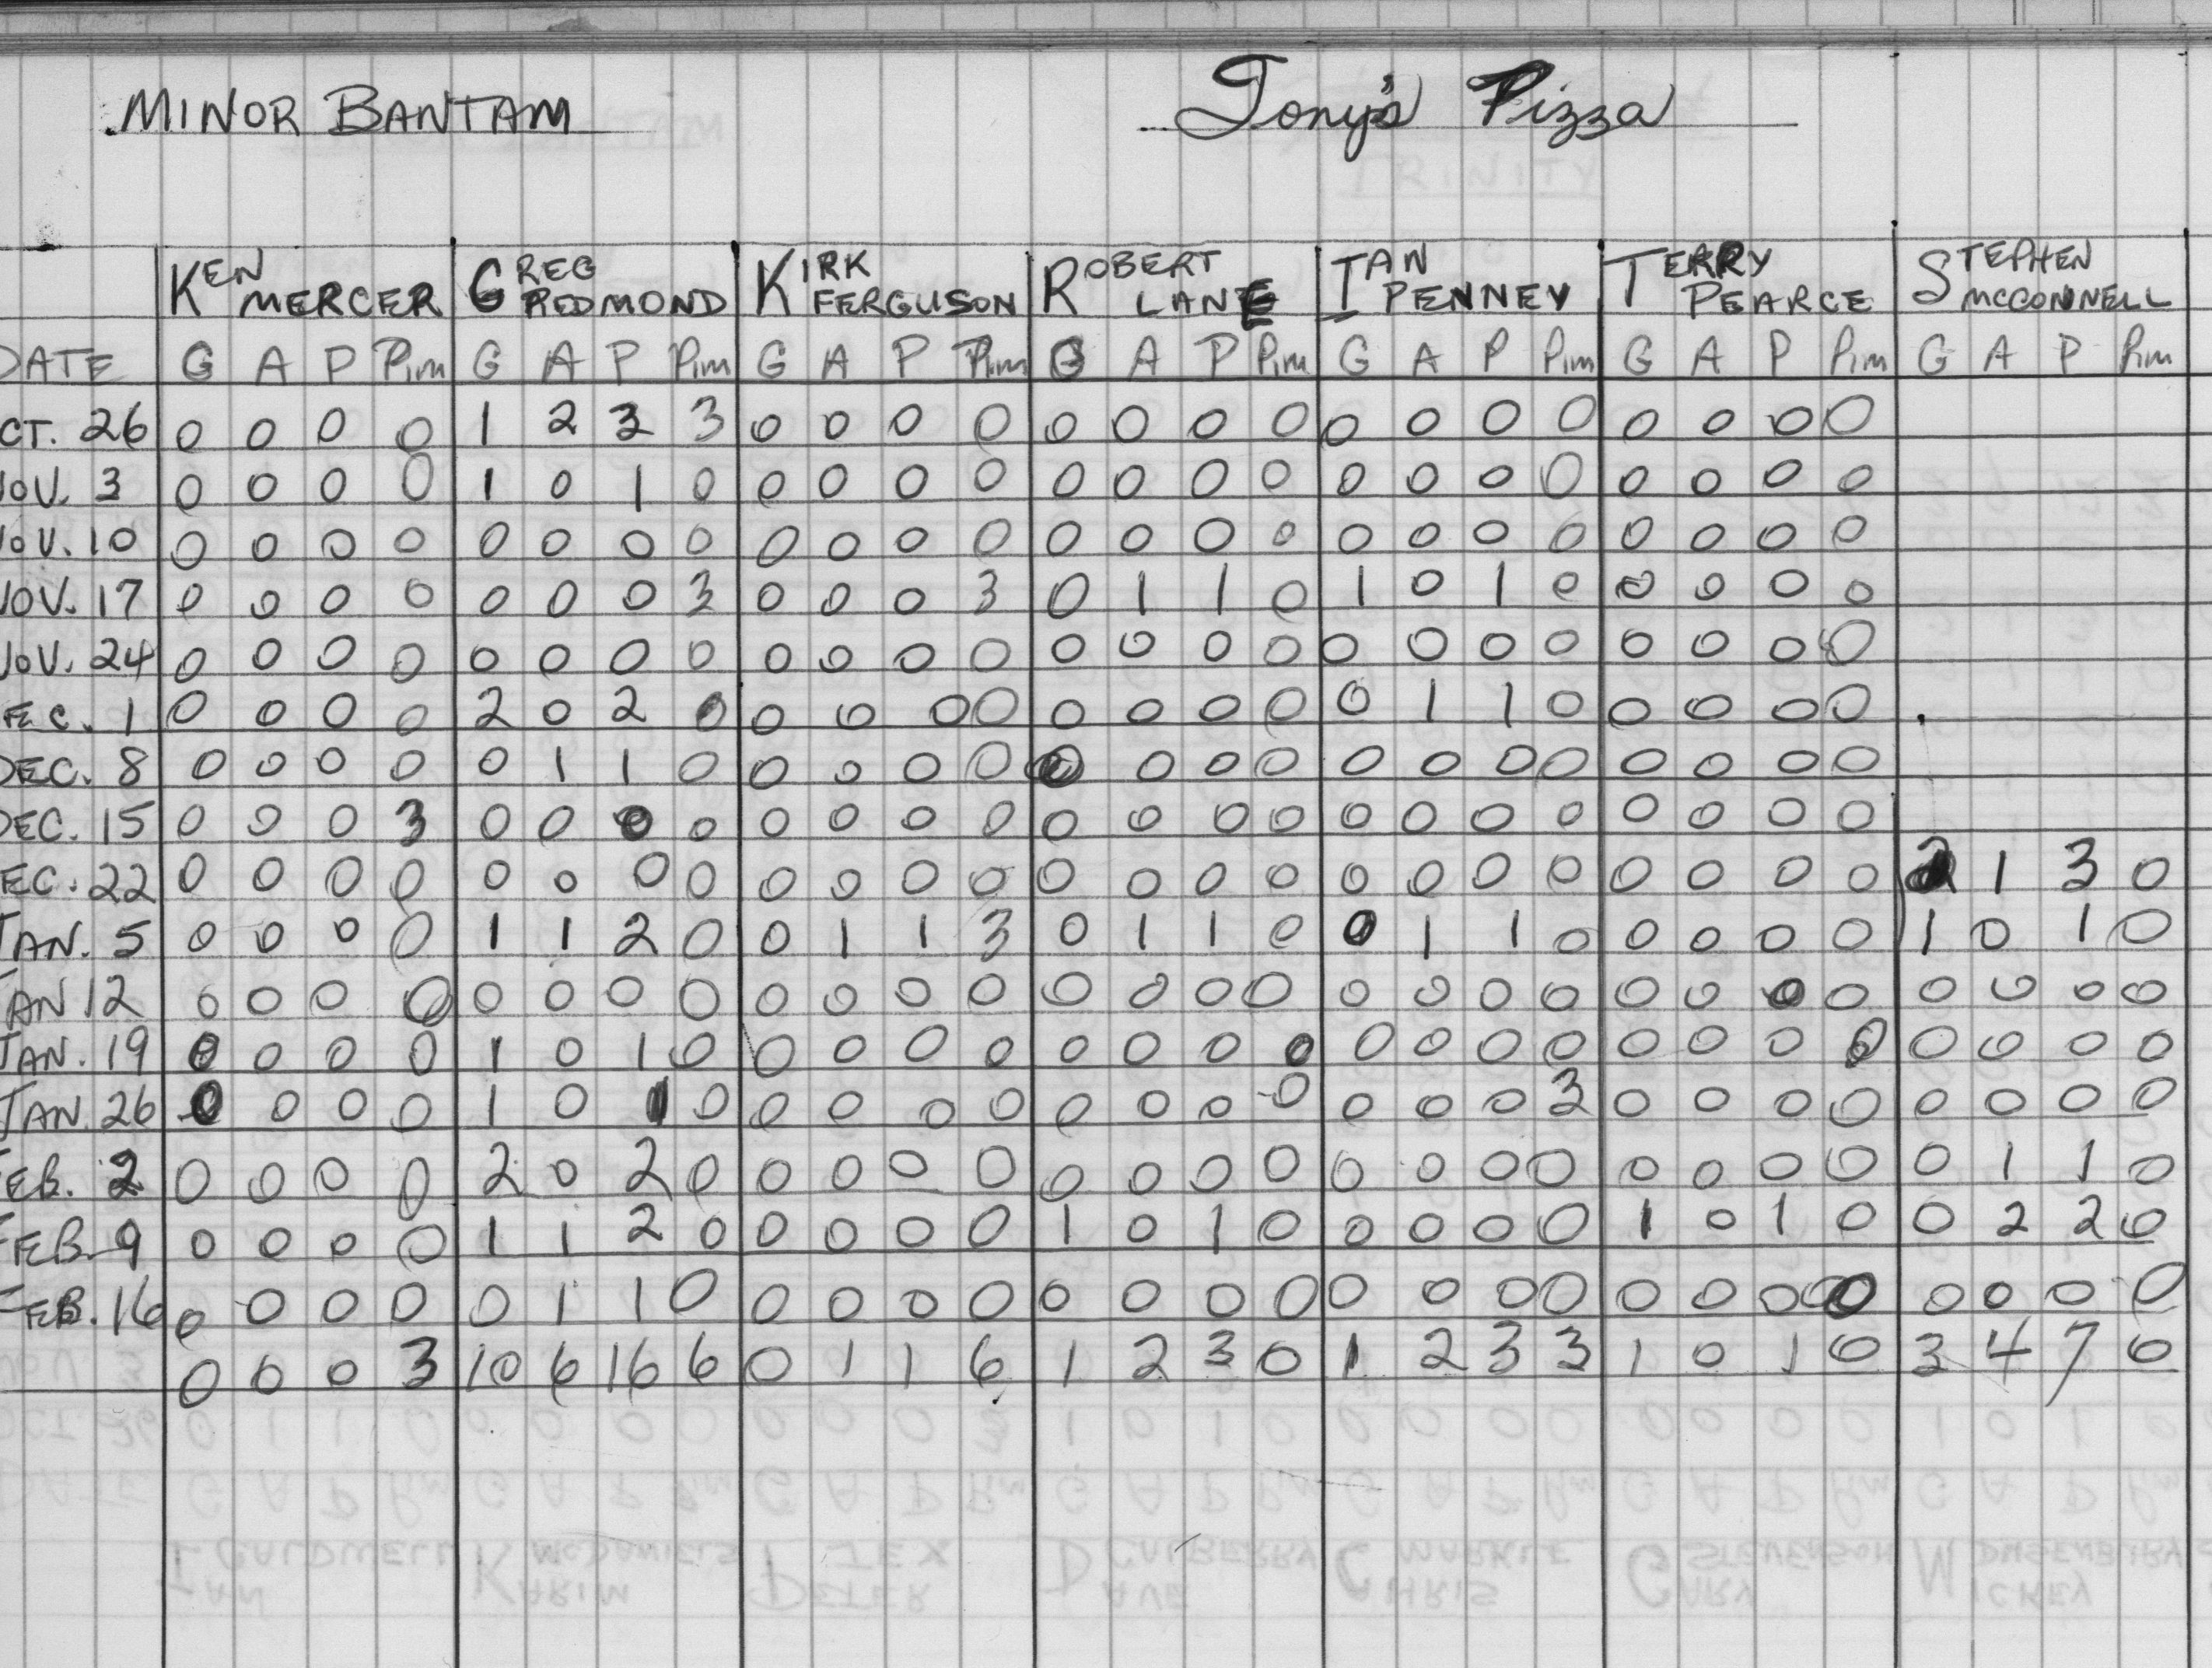 MINOR BANTAM Tony's Pizza
KEN MERCER GREG REDMOND KIRK FERGUSON ROBERT LANE IAN PENNEY TERRY PEARCE STEPHEN MCCONNELL
DATE G A P Pim G A P Pim G A P Pim G A P Pim G A P Pim G A P Pim G A P Pim
CT. 26 0 0 0 0 1 2 3 3 0 0 0 0 0 0 0 0 0 0 0 0 0 0 0 0
NOV. 3 0 0 0 0 1 0 1 0 0 0 0 0 0 0 0 0 0 0 0 0 0 0 0 0
NOV. 10 0 0 0 0 0 0 0 0 0 0 0 0 0 0 0 0 0 0 0 0 0 0 0 0
NOV. 17 0 0 0 0 0 0 0 3 0 0 0 3 0 1 1 0 1 0 1 0 0 0 0 0
NOV. 24 0 0 0 0 0 0 0 0 0 0 0 0 0 0 0 0 0 0 0 0 0 0 0 0
EC. 1 0 0 0 0 2 0 2 0 0 0 0 0 0 0 0 0 0 1 1 0 0 0 0 0
DEC. 8 0 0 0 0 0 1 1 0 0 0 0 0 0 0 0 0 0 0 0 0 0 0 0 0
DEC. 15 0 0 0 3 0 0 0 0 0 0 0 0 0 0 0 0 0 0 0 0 0 0 0 0
EC. 22 0 0 0 0 0 0 0 0 0 0 0 0 0 0 0 0 0 0 0 0 0 0 0 0 2 1 3 0
JAN. 5 0 0 0 0 1 1 2 0 0 1 1 3 0 1 1 0 0 1 1 0 0 0 0 0 1 0 1 0
JAN 12 0 0 0 0 0 0 0 0 0 0 0 0 0 0 0 0 0 0 0 0 0 0 0 0 0 0 0 0
JAN. 19 0 0 0 0 1 0 1 0 0 0 0 0 0 0 0 0 0 0 0 0 0 0 0 0 0 0 0 0
JAN. 26 0 0 0 0 1 0 1 0 0 0 0 0 0 0 0 0 0 0 0 3 0 0 0 0 0 0 0 0
FEB. 2 0 0 0 0 2 0 2 0 0 0 0 0 0 0 0 0 0 0 0 0 0 0 0 0 0 1 1 0
FEB. 9 0 0 0 0 1 1 2 0 0 0 0 0 1 0 1 0 0 0 0 0 1 0 1 0 0 2 2 0
FEB. 16 0 0 0 0 0 1 1 0 0 0 0 0 0 0 0 0 0 0 0 0 0 0 0 0 0 0 0 0
0 0 0 3 10 6 16 6 0 1 1 6 1 2 3 0 1 2 3 3 1 0 1 0 3 4 7 0